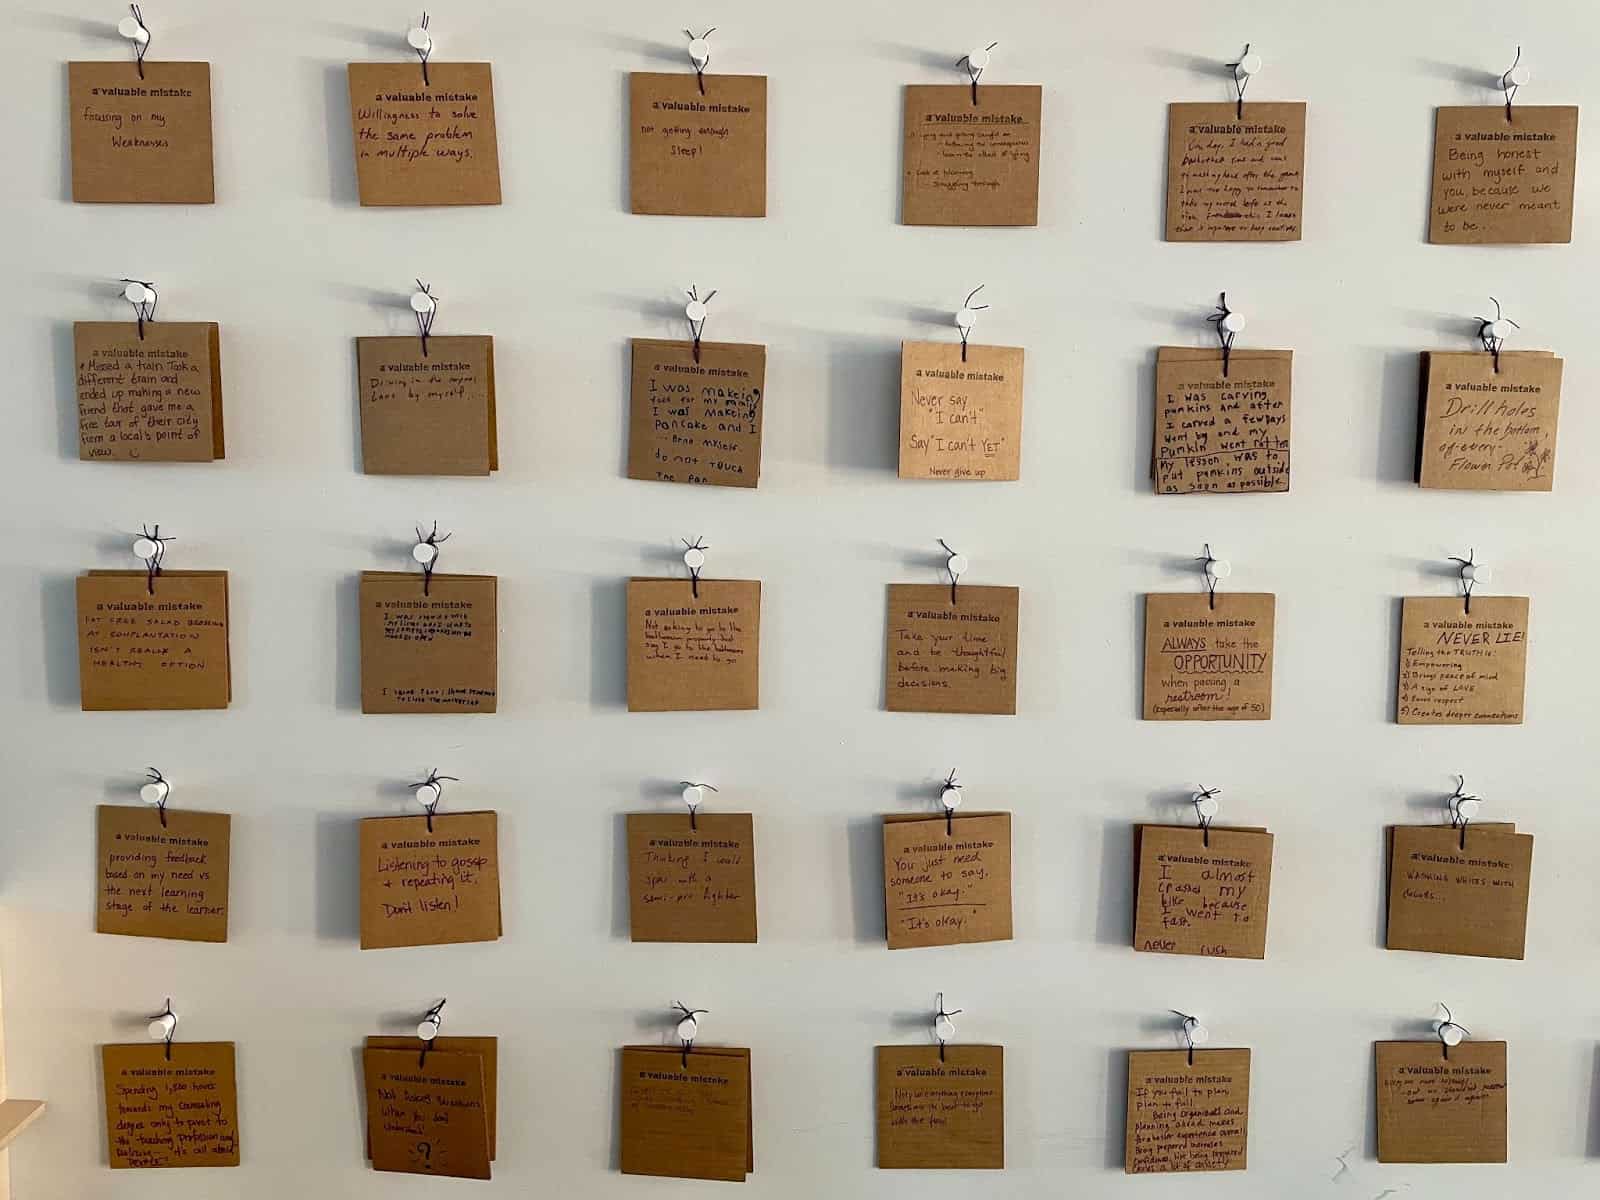 a valuable mistake
focusing on my
Weaknesses
a valuable mistake
Willingness to solve
the same problem
in multiple ways.
a valuable mistake
not getting enough
Sleep!
a valuable mistake
Lying and getting caught on
Lack of planning
a valuable mistake
One day, I had a good
basketball
I was too happy to remember to
take my
a valuable mistake
Being honest
with myself and
you, because we
were never meant
to be..
a valuable mistake
Missed a train Took a
different train and
ended up making a new
friend that gave me a
free tour of their city
from a local's point of
view.
a valuable mistake
Driving in the carpool
Lane by myself....
a valuable mistake
I was makeing
food for my family
I was makeing
Pancake and I
... Brne myself.
do not touch
The pan
a valuable mistake
Never say
"I can't".
Say "I can't YET"
Never give up
a valuable mistake
I was carving
punkins and after
I carved a few Days
went by and my
Punkin went rotten
My lesson was to
put punkins outside
as soon as possible.
a valuable mistake
Drill holes
in the bottom,
of every
Flower Pot
a valuable mistake
FAT FREE SALAD DRESSING
AT SOUPLANTATION
ISN'T REALLY A
HEALTHY OPTION
a valuable mistake
a valuable mistake
Not asking to go to the
bathroom properly but
say I go to the bathroom
when I need to go
a valuable mistake
Take your time
and be thoughtful
before making big
decisions.
a valuable mistake
ALWAYS take the
OPPORTUNITY
when passing a
restroom!
(especially after the age of 50)
a valuable mistake
NEVER LIE!
Telling the TRUTH is:
1) Empowering
2) Brings peace of mind
3) A sign of LOVE
4) respect
5) Creates deeper connections
a valuable mistake
providing feedback
based on my need vs
the next learning
stage of the learner.
a valuable mistake
Listening to gossip
+ repeating it.
Don't listen!
a valuable mistake
Thinking I could
spar with a
semi-pro fighter
a valuable mistake
You just need
someone to say,
"It's okay."
"It's okay."
a valuable mistake
I almost
crashed my
bike because
I went to
fast.
never rush
a valuable mistake
WASHING WHITES WITH
COLORS...
a valuable mistake
Spending 1,500 hours
towards my counseling
degree only to pivot to
the teaching profession and
realize - it's all about
PEOPLE!
a valuable mistake
Not asking questions
when you don't
understand!
?
a valuable mistake
a valuable mistake
Not everything
sometimes its best to go
with the flow!
a valuable mistake
If you fail to plan,
plan to fail.
Being organized and
planning ahead makes
for a better experience overall.
Being prepared increases
confidence. Not being prepared
a lot of anxiety
a valuable mistake